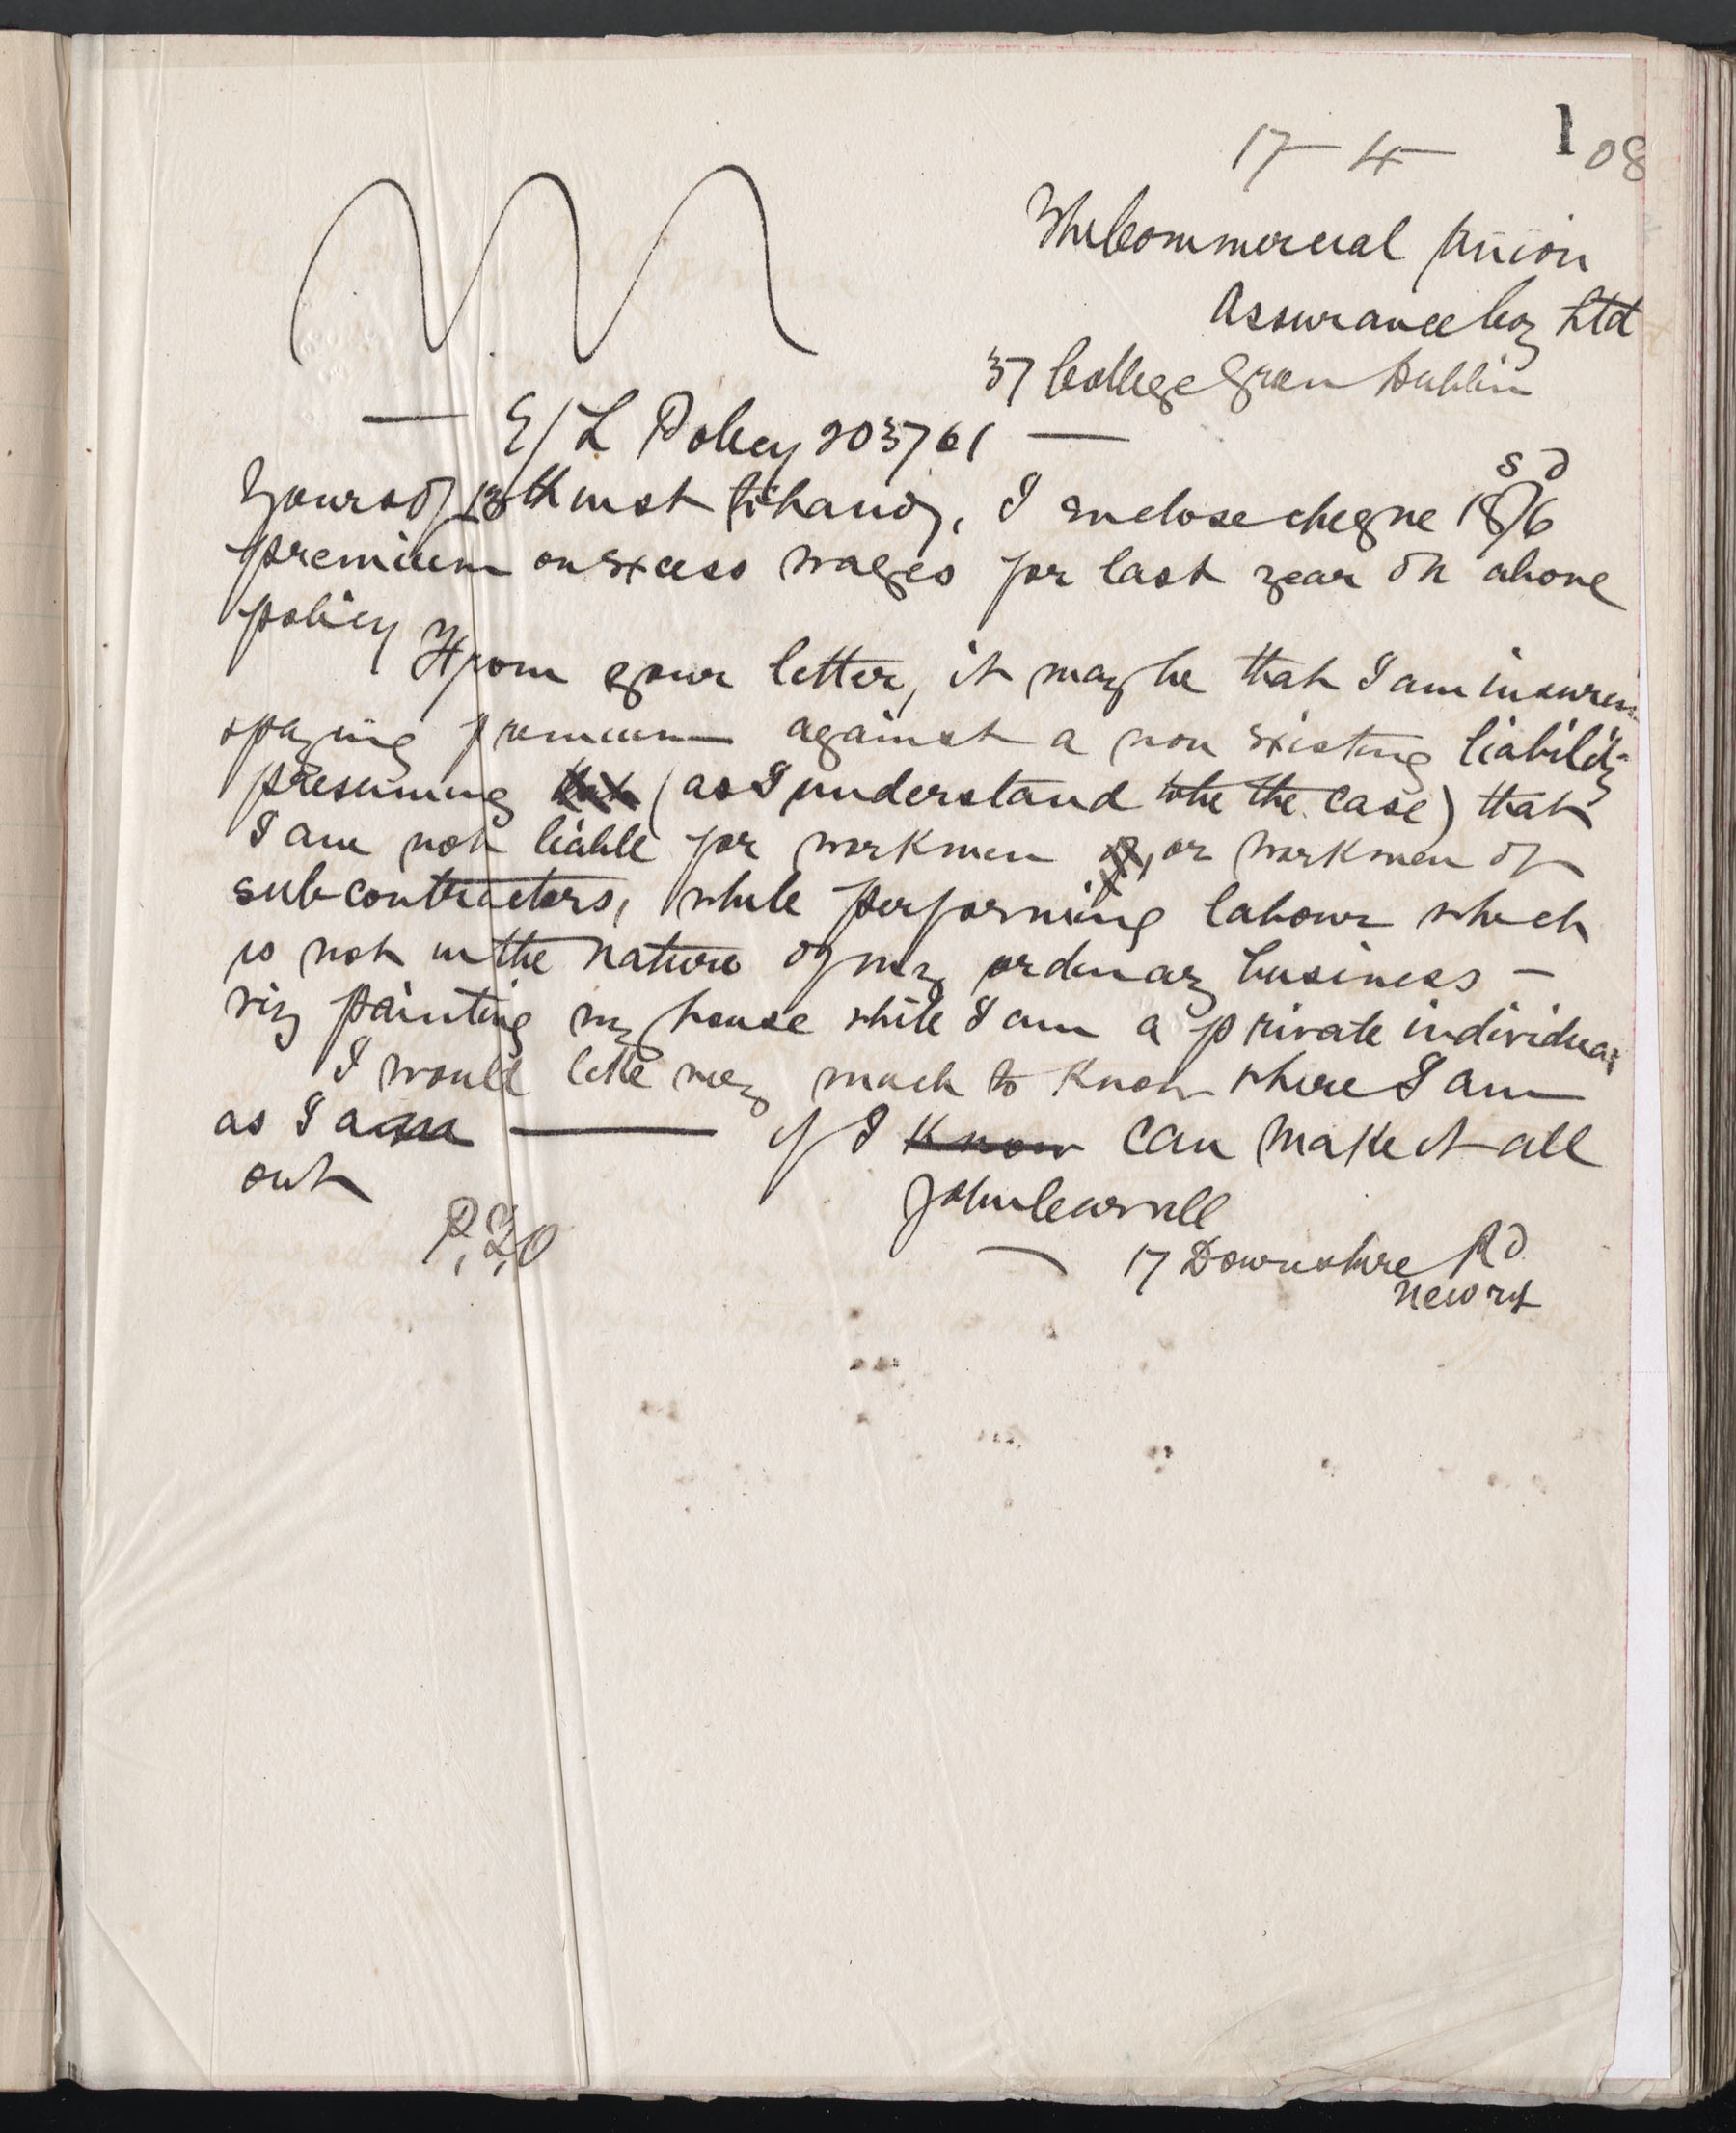 1
17 - 4 - 08
The Commercial Union
Assurance Coy Ltd
37 College Green Dublin
— E/L Policy 203761 —
Yours of 13th inst to hand, I enclose cheque 18s/6d
premium on excess wages for last year on above
policy
From your letter, it may be that I am insuring
& paying premium against a non existing liability
presuming (as I understand to be the case) that
I am not liable for workmen or, or workmen of
sub-contractors, while performing labour which
is not in the nature of my ordinary business —
viz painting my house while I am a private individual
I would like very much to know where I am
as I am —— if I know can make it all
out
P.T.O
John
17 Downshire Rd
Newry